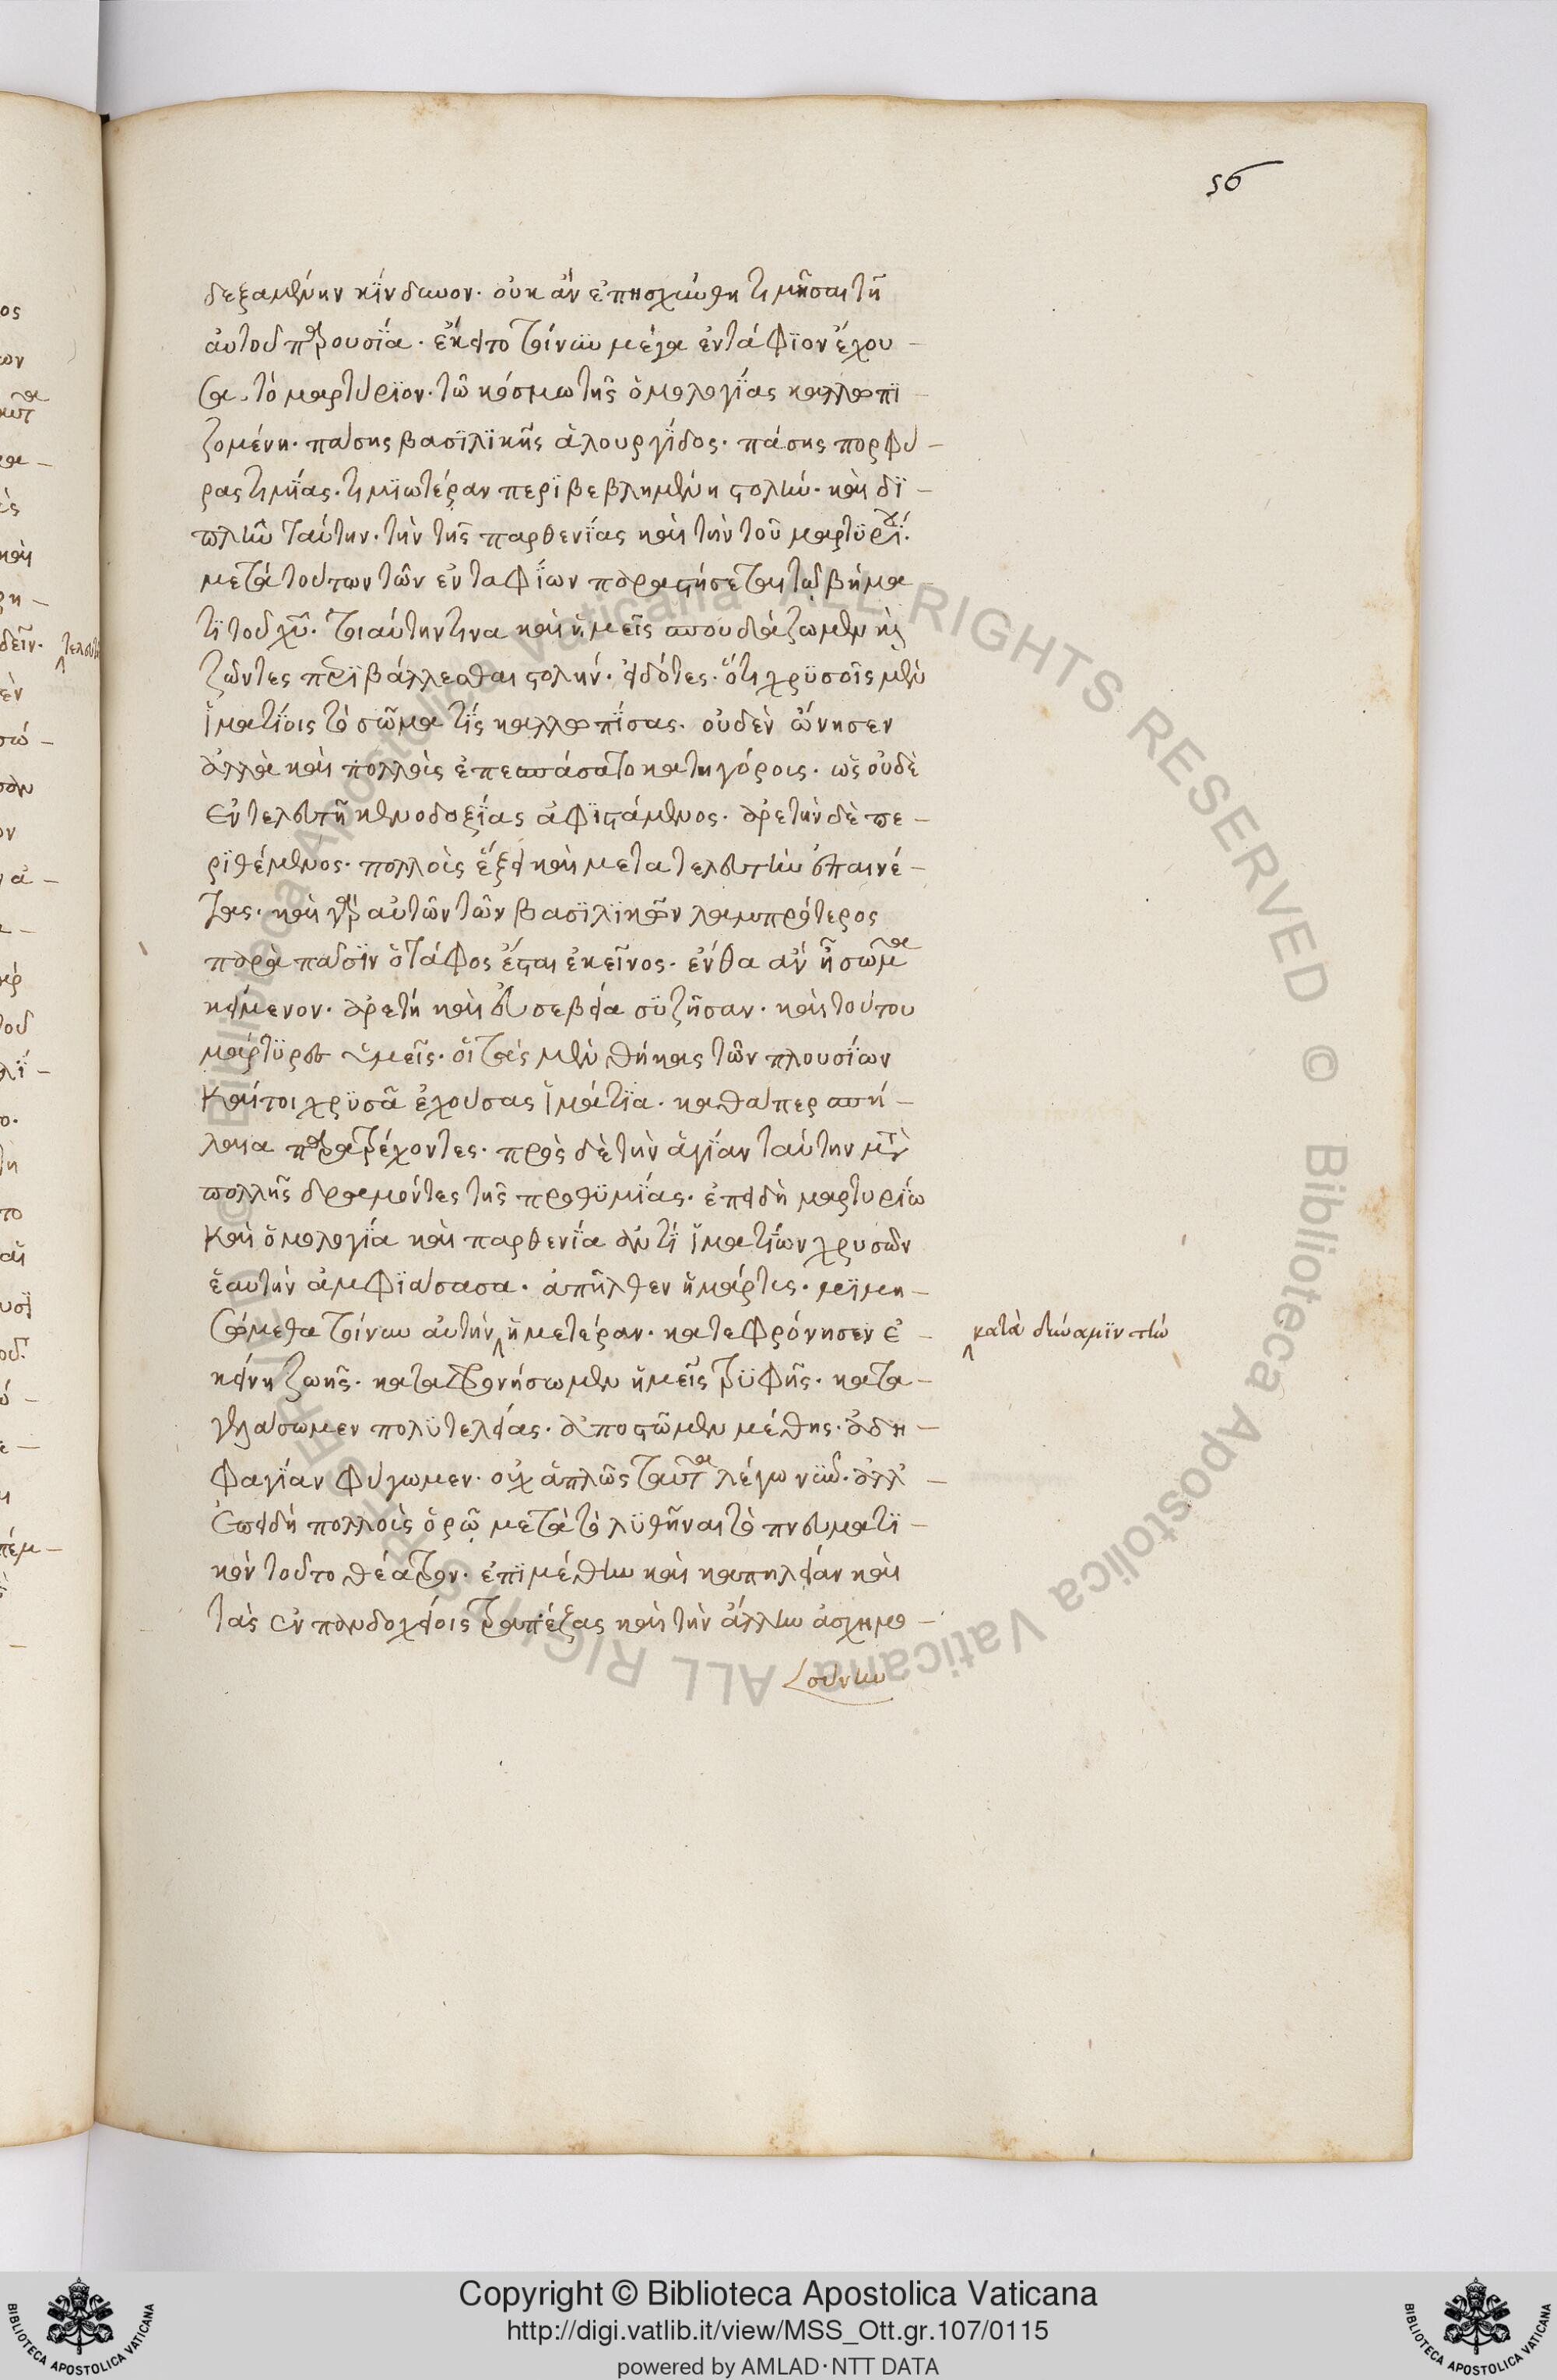 56
δεξαμένην κίνδυνον· οὐκ ἂν ἐπησχύνθη τιμῆσαι τῇ
αὐτοῦ παρουσία· ἔκειτο τοίνυν μέγα ἐντάφϊον ἔχου –
σα τὸ μαρτύριον· τῶ κόσμω τῆς ὁμολογΐας καλλωπϊ –
ζομένη· πάσης βασϊλϊκῆς ἁλουργΐδος· πάσης πορφύ –
ρας τιμΐας· τιμϊωτέραν περϊβεβλημένη στολήν· καὶ δϊ –
πλῆν ταύτην· τὴν τῆς παρθενΐας καὶ τὴν τοῦ μαρτϋρΐου·
μετὰ τούτων τῶν ἐνταφΐων παραστήσεται τῶ βήμα –
τϊ τοῦ χῦ· τοιαύτην τινα καὶ ἡμεῖς σπουδάζωμεν κ
ζῶντες περϊβάλλεσθαι στολήν· εἰδότες· ὅτι χρϋσοῖς μὲν
ἱματΐοις τὸ σῶμα τίς καλλωπΐσας· οὐδὲν ὤνησεν
ἀλλὰ καὶ πολλοὺς ἐπεσπάσατο κατηγόρους· ὡς οὐδὲ
ἐν τελευτῆ κενοδοξΐας ἀφϊστάμενος· ἀρετὴν δὲ πε –
ρϊθέμενος· πολλοὺς ἕξει καὶ μετα τελευτὴν ἐπαινέ –
τας· καὶ γὰρ αὐτῶν τῶν βασϊλϊκῶν λαμπρότερος
παρὰ πᾶσϊν ὁ τάφος ἔσται ἐκεῖνος· ἔνθα ἂν ἦ σῶμα
κείμενον· ἀρετή καὶ εὐσεβεία συζῆσαν· καὶ τούτου
μάρτϋρες ὑμεῖς· οἱ τὰς μὲν θήκας τῶν πλουσΐων
καίτοι χρϋσᾶ ἐχούσας ἱμάτϊα· καθάπερ σπή –
λαια παρατρέχοντες· πρὸς δὲ τὴν ἁγΐαν ταύτην μετὰ
πολλῆς δραμόντες τῆς προθϋμΐας· ἐπειδὴ μαρτυρΐω
καὶ ὁμολογΐα καὶ παρθενΐα ἀντὶ ἱματΐων χρυσῶν
ἑαυτὴν ἀμφϊάσασα· ἀπῆλθεν ἡ μάρτυς· μϊμη –
σώμεθα τοίνυν αὐτὴν ‸ ἡμετέραν· κατεφρόνησεν ἐ –
‸ κατὰ δύναμϊν τὴν
κείνη ζωῆς· καταφρονήσωμεν ἡμεῖς τρϋφῆς· κατα –
γελάσωμεν πολϋτελείας· ἀποστῶμεν μέθης· ἀδη –
φαγΐαν φύγωμεν· οὐχ ἁπλῶς ταῦτα λέγω νῦν· ἀλλ' –
ἐπειδὴ πολλοὺς ὁρῶ μετὰ τὸ λϋθῆναι τὸ πνευματϊ –
κὸν τοῦτο θέατρον· ἐπὶ μέθην καὶ καπηλείαν καὶ
τὰς ἐν πανδοχείοις τραπέζας καὶ τὴν ἄλλην ἀσχημο –
σύνην
Copyright © Biblioteca Apostolica Vaticana
http://digi.vatlib.it/view/MSS_Ott.gr.107/0115
powered by AMLAD·NTT DATA